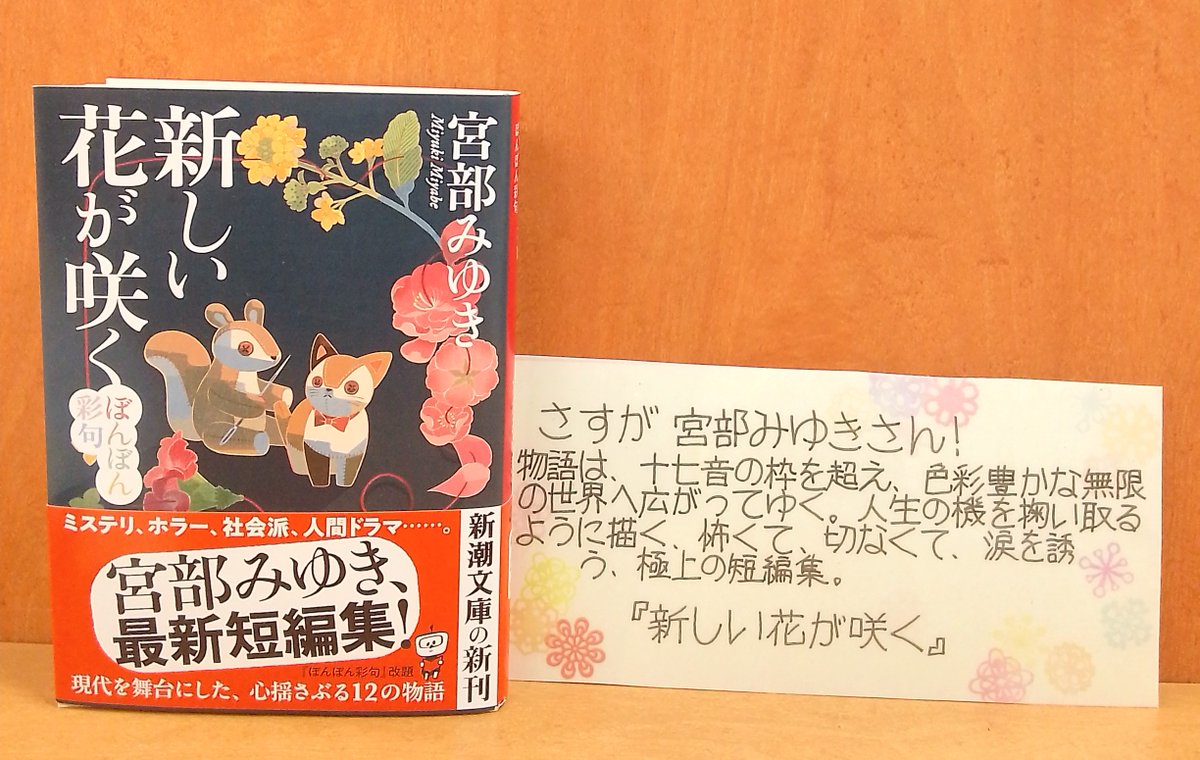 宮部みゆき
Miyuki Miyabe
新しい
花が咲く
ぼんぼん
彩句
ミステリ、ホラー、社会派、人間ドラマ……。
宮部みゆき、
最新短編集!
『ぼんぼん彩句』改題
現代を舞台にした、心揺さぶる12の物語
新潮文庫の新刊
さすが 宮部みゆきさん!
物語は、十七音の枠を超え、色彩豊かな無限
の世界へ広がってゆく。人生の機を掬い取る
ように描く、怖くて、切なくて、涙を誘
う、極上の短編集。
『新しい花が咲く』